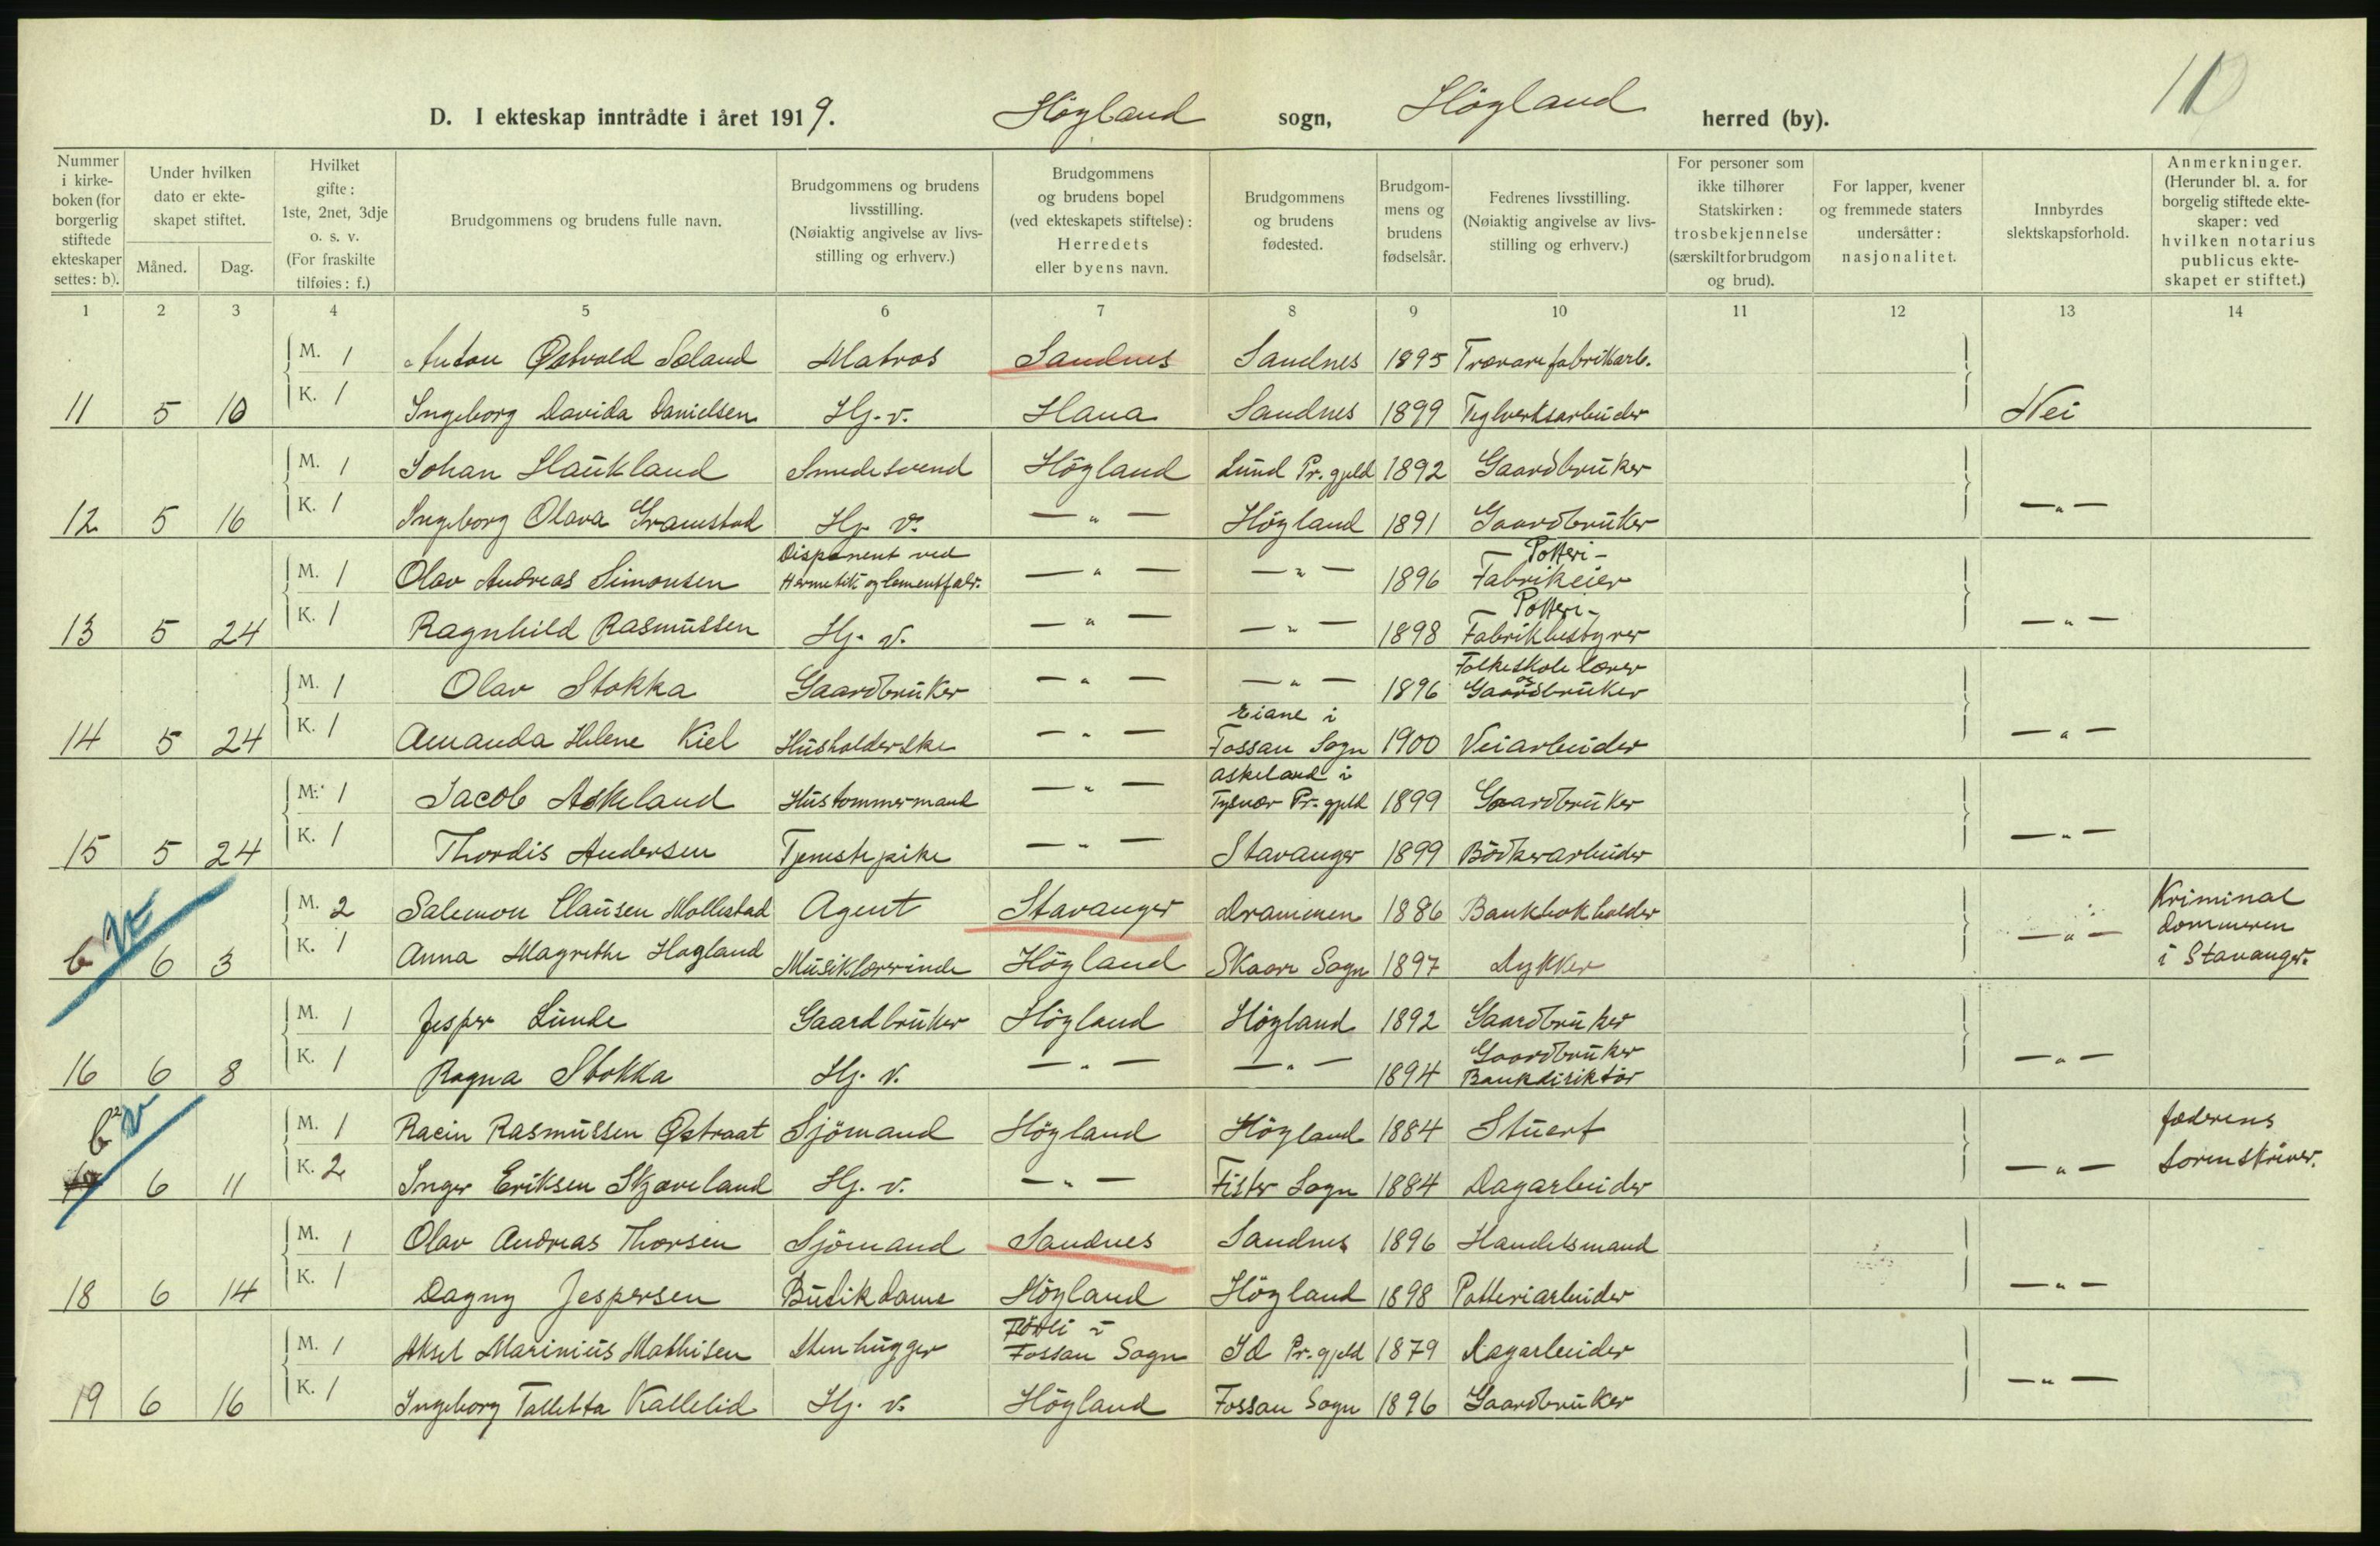 D. I ekteskap inntrådte i året 1919. Høgland sogn, Høgland herred (by).
Nummer i kirkeboken (for borgerlig stiftede ekteskaper settes: b).
Under hvilken dato er ekteskapet stiftet.
Måned. Dag.
Hvilket gifte: 1ste, 2net, 3dje o. s. v. (For fraskilte tilføies: f.)
Brudgommens og brudens fulle navn.
Brudgommens og brudens livsstilling. (Nøiaktig angivelse av livsstilling og erhverv.)
Brudgommens og brudens bopel (ved ekteskapets stiftelse): Herredets eller byens navn.
Brudgommens og brudens fødested.
Brudgommens og brudens fødselsår.
Fedrenes livsstilling. (Nøiaktig angivelse av livsstilling og erhverv.)
For personer som ikke tilhører Statskirken: trosbekjennelse (særskilt for brudgom og brud).
For lapper, kvener og fremmede staters undersåtter: nasjonalitet.
Innbyrdes slektskapsforhold.
Anmerkninger. (Herunder bl. a. for borgelig stiftede ekteskaper: ved hvilken notarius publicus ekteskapet er stiftet.)
1 2 3 4 5 6 7 8 9 10 11 12 13 14
M. 1 Anton Østvold Soland Matros Sandnes Sandnes 1895 Trævarefabrikarb.
11 5 10 K. 1 Ingeborg Davida Danielsen Hj. v. Hana Sandnes 1899 Teglverksarbeider Nei
M. 1 Johan Haukland Smedesvend Høgland Lund Pr. gjeld 1892 Gaardbruker
12 5 16 K. 1 Ingeborg Olava Gramstad Hj. v. — " — Høgland 1891 Gaardbruker — " —
M. 1 Olav Andreas Simonsen Disponent ved Hermetik og Cementfabr. — " — — " — 1896 Potteri- Fabrikeier
13 5 24 K. 1 Ragnhild Rasmussen Hj. v. — " — — " — 1898 Potteri- Fabrikbestyrer — " —
M. 1 Olav Stokka Gaardbruker — " — — " — 1896 Folkeskolelærer og Gaardbruker
14 5 24 K. 1 Amanda Helene Kiel Husholderske — " — Eiane i Fossan Sogn 1900 Veiarbeider — " —
M. 1 Jacob Askeland Hustømmermand — " — Askeland i Tysvær Pr. gjeld 1899 Gaardbruker
15 5 24 K. 1 Thordis Andersen Tjenestepike — " — Stavanger 1899 Bødkerarbeider — " —
M. 2 Salemon Clausen Mollestad Agent Stavanger Drammen 1886 Bankbokholder Kriminal dommeren i Stavanger.
b 6 3 K. 1 Anna Magrethe Hogland Musiklærerinde Høgland Skaare Sogn 1897 Dykker — " —
M. 1 Jesper Lunde Gaardbruker Høgland Høgland 1892 Gaardbruker
16 6 8 K. 1 Ragna Stokka Hj. v. — " — — " — 1894 Gaardbruker Bankdirektør — " —
M. 1 Racin Rasmussen Østraat Sjømand Høgland Høgland 1884 Stuert Jæderens Sorenskriver.
b 6 11 K. 2 Inger Eriksen Skjæveland Hj. v. — " — Fister Sogn 1884 Dagarbeider — " —
M. 1 Olav Andreas Thorsen Sjømand Sandnes Sandnes 1896 Handelsmand
18 6 14 K. 1 Dagny Jespersen Butikdame Høgland Høgland 1898 Potteriarbeider — " —
M. 1 Aksel Marinius Mathisen Stenhugger i Fossan Sogn Id Pr. gjeld 1879 Dagarbeider
19 6 16 K. 1 Ingeborg Talletta Kallelid Hj. v. Høgland Fossan Sogn 1896 Gaardbruker — " —